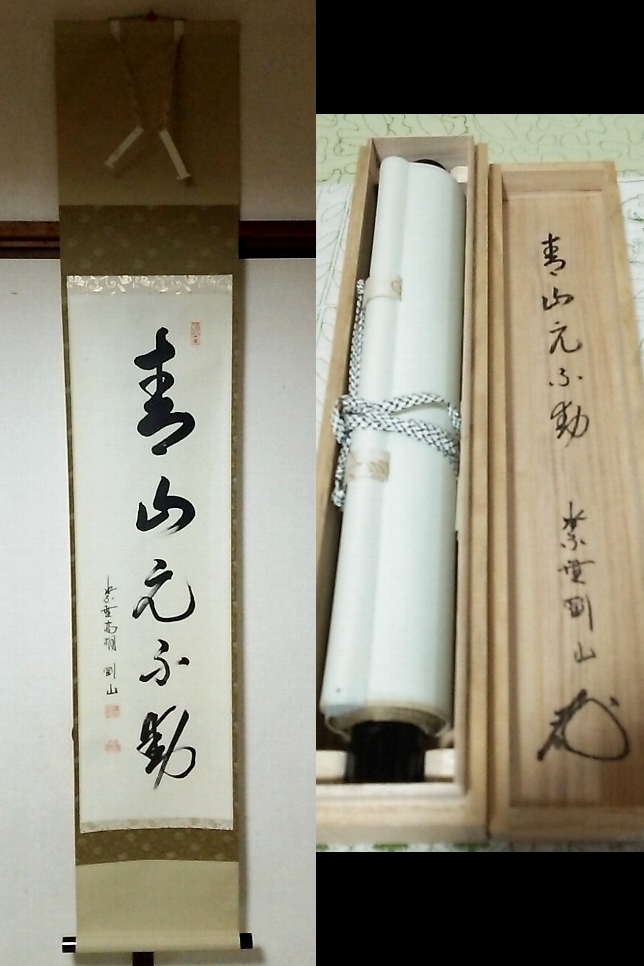 青山元不動
紫野高桐 剛山
青山元不動
紫野剛山